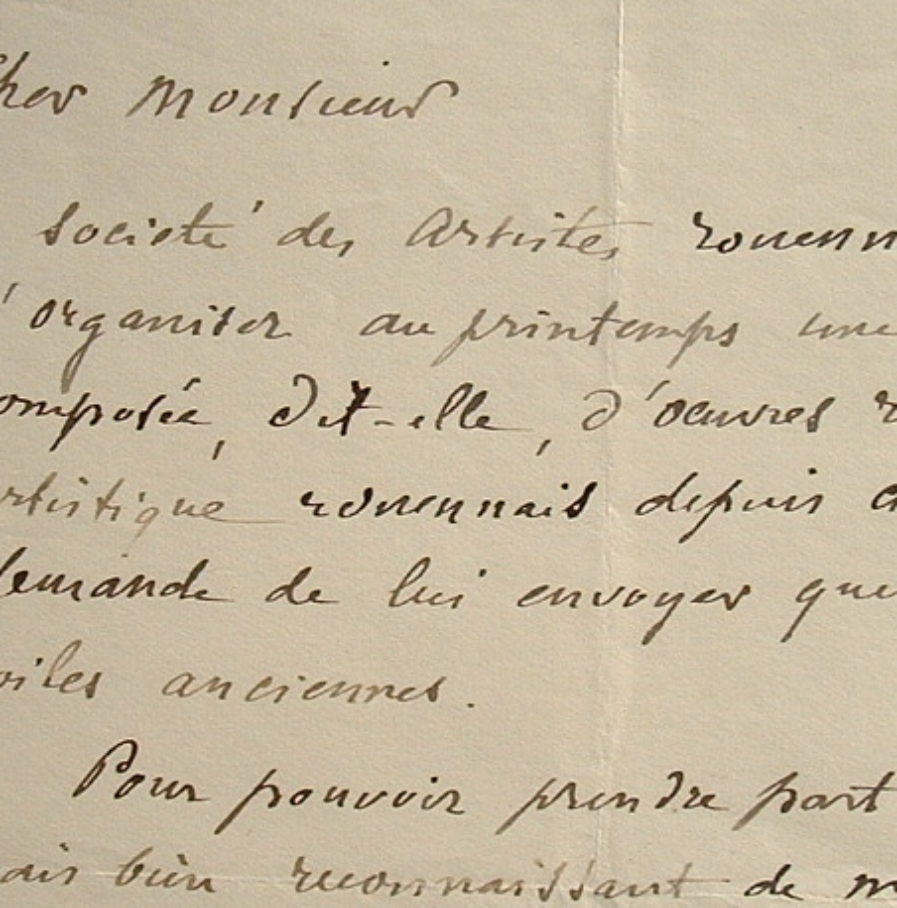 cher Monsieur
societé des Artistes rouenn
'organiser au printemps une
omposée, dit-elle, d'oeuvres r
rtistique rouennais depuis
demande de lui envoyer que
oiles anciennes.
Pour pouvoir prendre part
ais bien reconnaissant de m